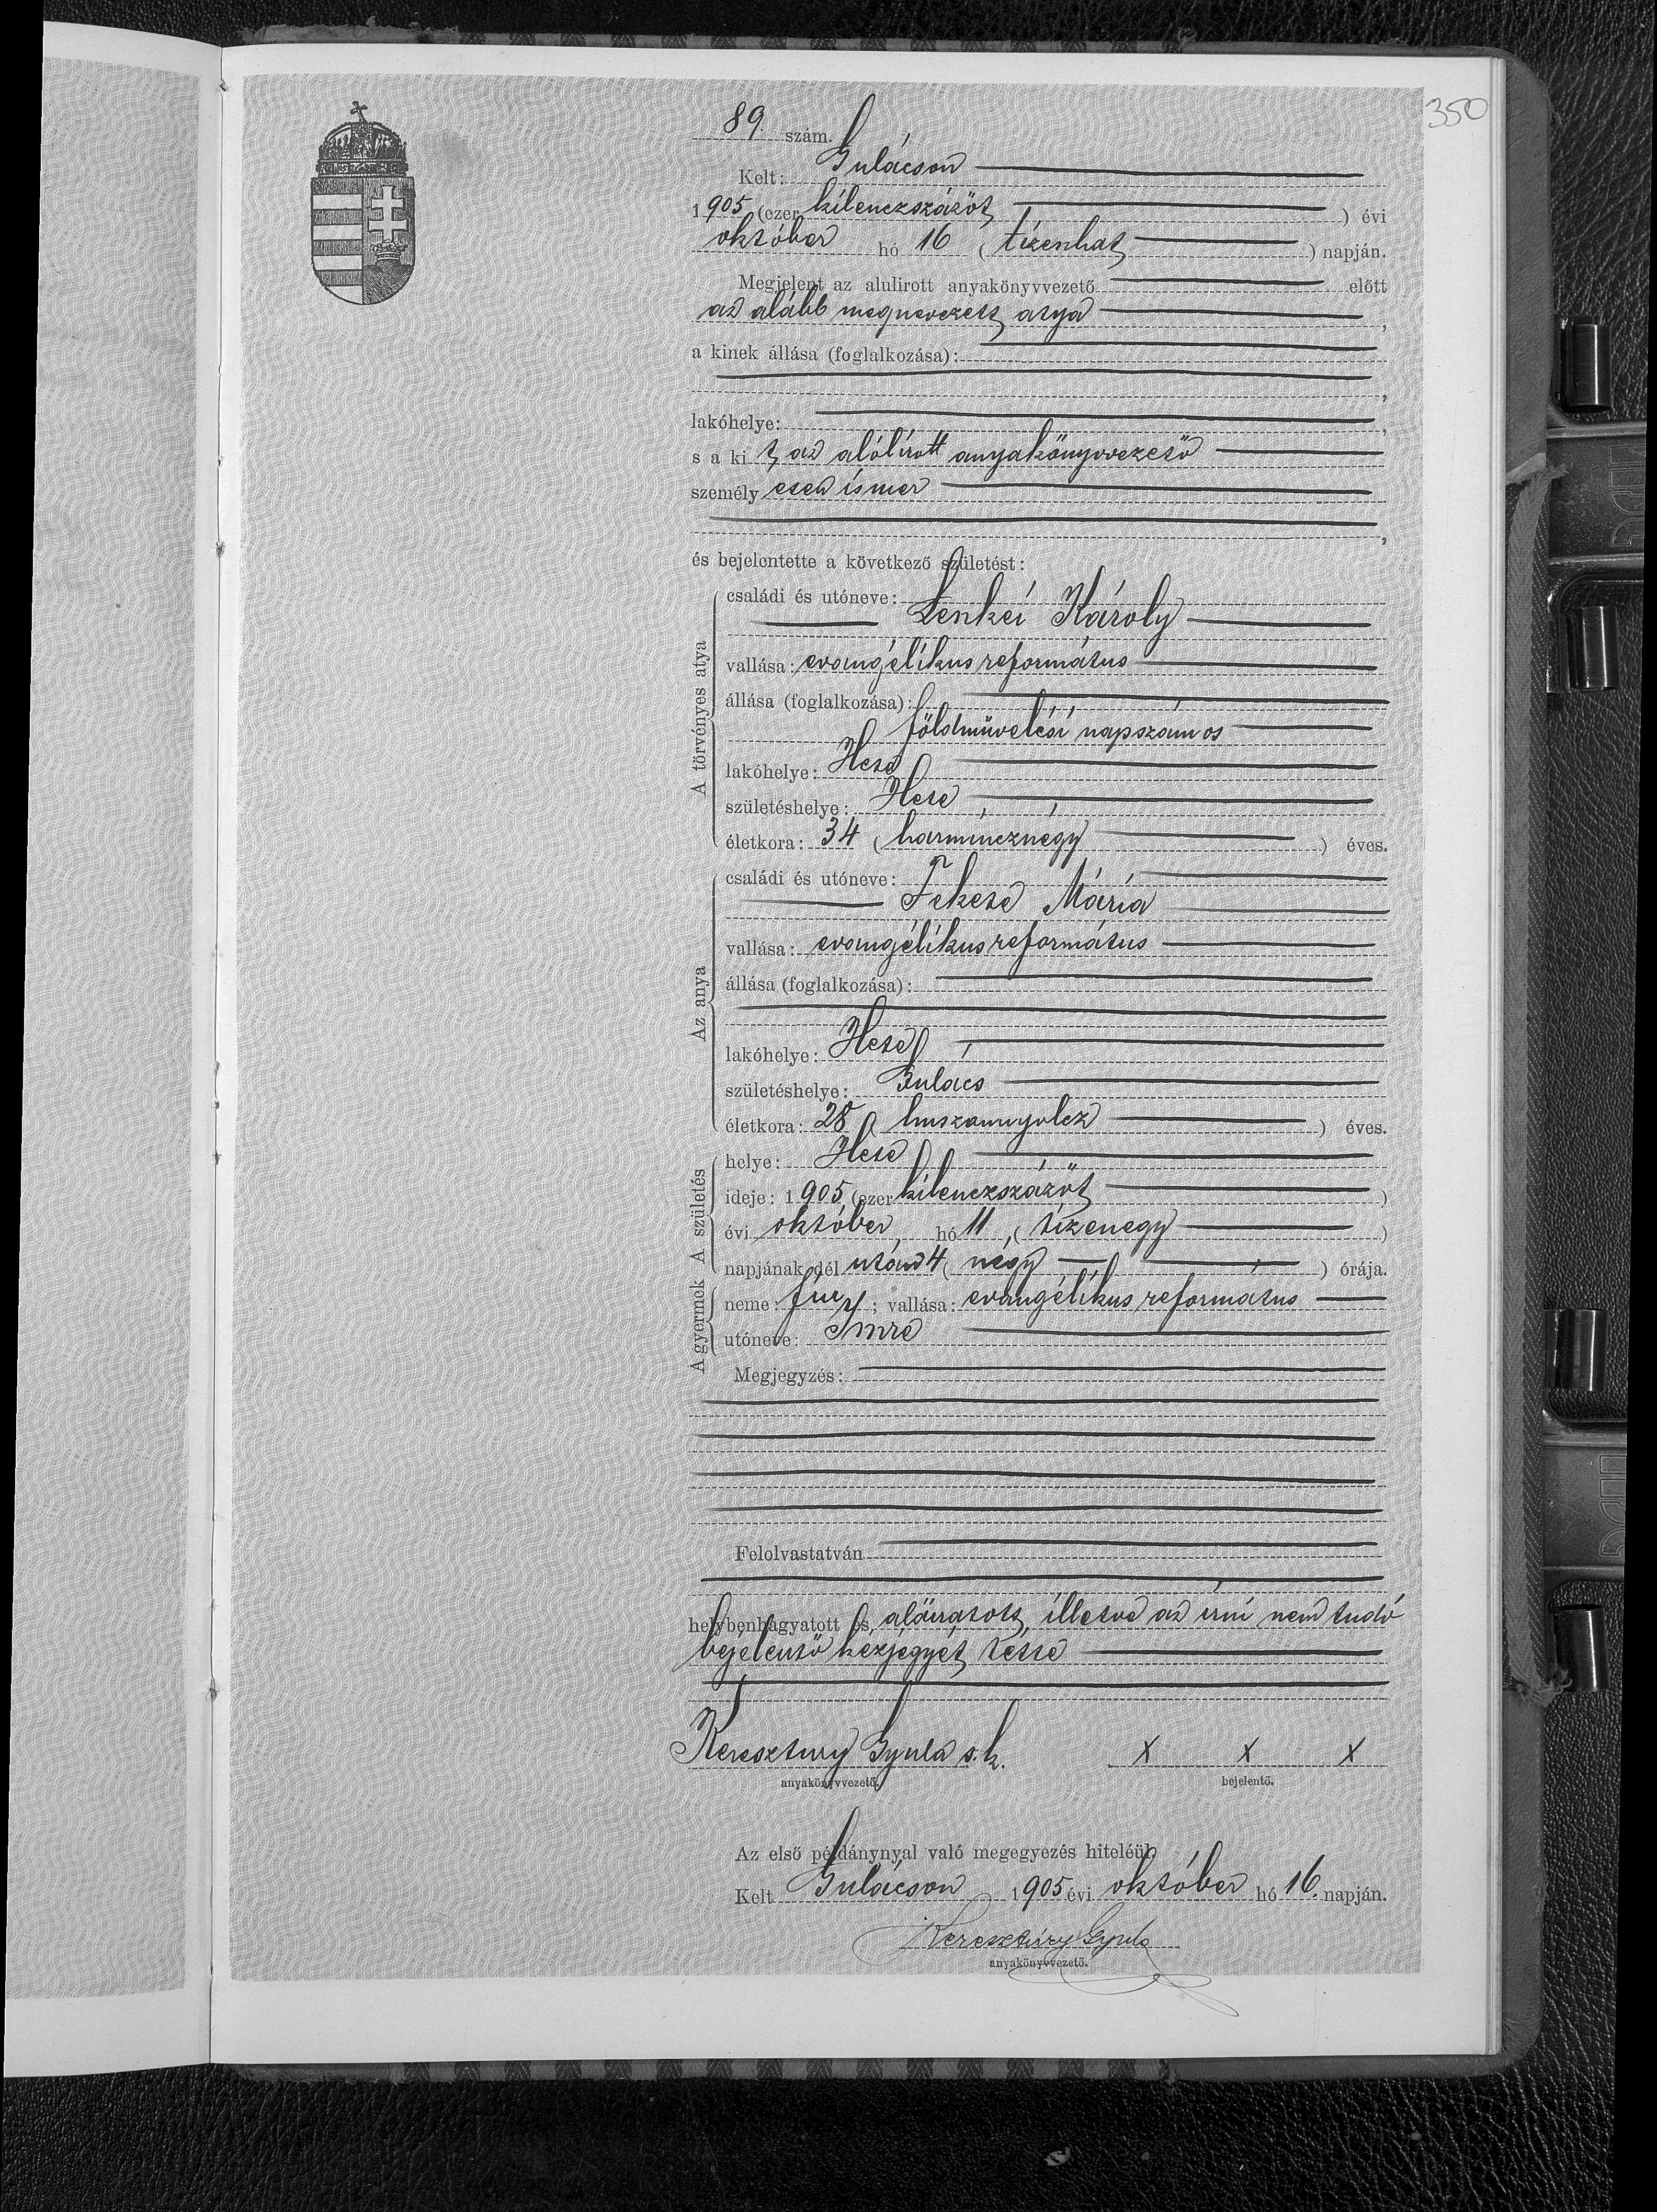 350
89. szám.
Kelt: Gulácson
1905 (ezer kilenczszázöt) évi
október hó 16 (tizenhat) napján.
Megjelent az alulirott anyakönyvvezető előtt
az alább megnevezett atya,
a kinek állása (foglalkozása):
lakóhelye:
s a kit az alólírott anyakönyvvezető
személyesen ismer
és bejelentette a következő születést:
A törvényes atya
családi és utóneve:
Lenkei Károly
vallása: evangélikus református
állása (foglalkozása):
földmüvelési napszámos
lakóhelye: Hete
születéshelye: Hete
életkora: 34 (harmincznégy) éves.
Az anya
családi és utóneve:
Fekete Mária
vallása: evangélikus református
állása (foglalkozása):
lakóhelye: Hete
születéshelye: Gulács
életkora: 28 (huszonnyolcz) éves.
A születés
helye: Hete
ideje: 1905 (ezer kilenczszázöt)
évi október hó 11, (tizenegy)
napjának dél után 4 (négy) órája.
A gyermek
neme: fiu; vallása: evangélikus református
utóneve: Imre
Megjegyzés:
Felolvastatván
helybenhagyatott és aláiratott, illetve az irni nem tudó
bejelentő kézjegyét tette
Keresztury Gyula s.k. X X X
anyakönyvvezető. bejelentő.
Az első példánynyal való megegyezés hiteléül:
Kelt Gulácson 1905 évi október hó 16. napján.
Keresztúry Gyula
anyakönyvvezető.